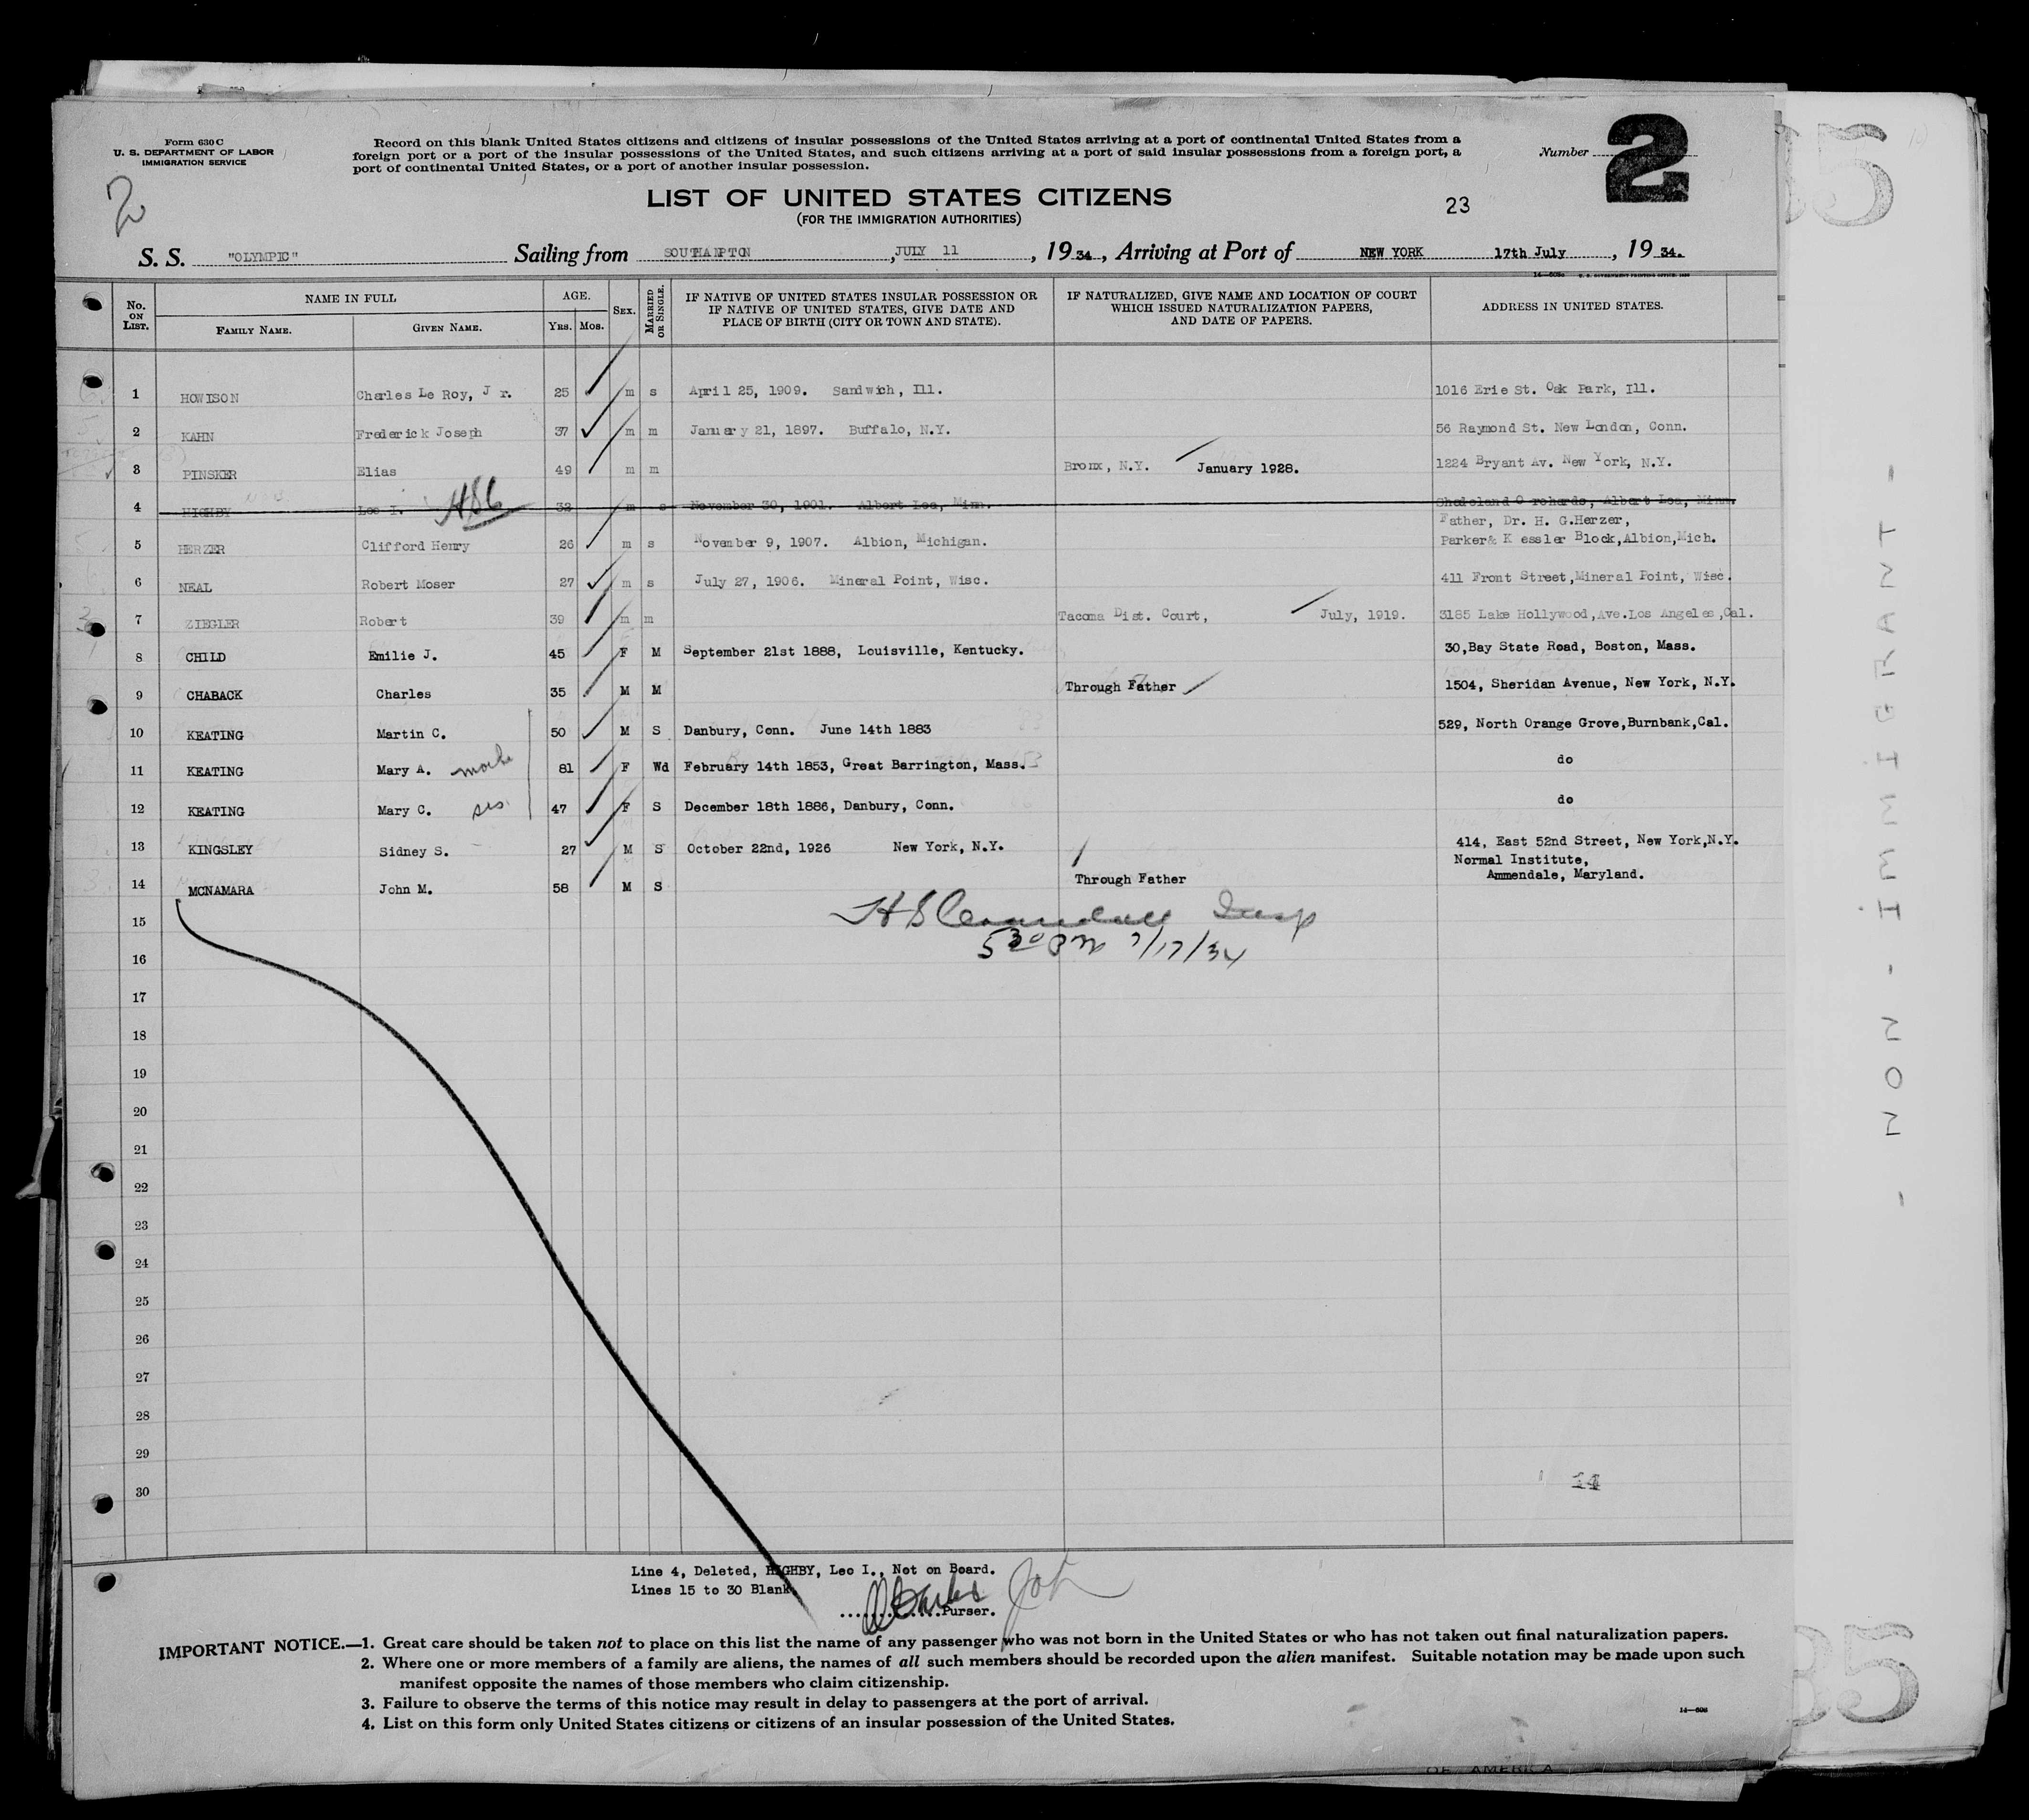 Form 630 C
U. S. DEPARTMENT OF LABOR
IMMIGRATION SERVICE
Record on this blank United States citizens and citizens of insular possessions of the United States arriving at a port of continental United States from a
foreign port or a port of the insular possessions of the United States, and such citizens arriving at a port of said insular possessions from a foreign port, a
port of continental United States, or a port of another insular possession.
Number 2
2
LIST OF UNITED STATES CITIZENS
(FOR THE IMMIGRATION AUTHORITIES)
23
S. S. "OLYMPIC" Sailing from SOUTHAMPTON, JULY 11, 1934, Arriving at Port of NEW YORK 17th July, 1934.
No. ON LIST. NAME IN FULL FAMILY NAME. GIVEN NAME. AGE. YRS. MOS. SEX. MARRIED OR SINGLE. IF NATIVE OF UNITED STATES INSULAR POSSESSION OR IF NATIVE OF UNITED STATES, GIVE DATE AND PLACE OF BIRTH (CITY OR TOWN AND STATE). IF NATURALIZED, GIVE NAME AND LOCATION OF COURT WHICH ISSUED NATURALIZATION PAPERS, AND DATE OF PAPERS. ADDRESS IN UNITED STATES.
1 HOWISON Charles Le Roy, Jr. 25 m s April 25, 1909. Sandwich, Ill. 1016 Erie St. Oak Park, Ill.
2 KAHN Frederick Joseph 37 m m January 21, 1897. Buffalo, N.Y. 56 Raymond St. New London, Conn.
3 PINSKER Elias 49 m m Bronx, N.Y. January 1928. 1224 Bryant Av. New York, N.Y.
4 HIGHBY Leo I. HSC 32 m s November 30, 1901. Albert Lea, Minn. Shadeland Orchards, Albert Lea, Minn.
Father, Dr. H. G.Herzer,
5 HERZER Clifford Henry 26 m s November 9, 1907. Albion, Michigan. Parker& Kessler Block,Albion,Mich.
6 NEAL Robert Moser 27 m s July 27, 1906. Mineral Point, Wisc. 411 Front Street,Mineral Point, Wisc.
7 ZIEGLER Robert 39 m m Tacoma Dist. Court, July, 1919. 3185 Lake Hollywood,Ave.Los Angeles,Cal.
8 CHILD Emilie J. 45 F M September 21st 1888, Louisville, Kentucky. 30,Bay State Road, Boston, Mass.
9 CHABACK Charles 35 M M Through Father 1504, Sheridan Avenue, New York, N.Y.
10 KEATING Martin C. 50 M S Danbury, Conn. June 14th 1883 529, North Orange Grove,Burnbank,Cal.
11 KEATING Mary A. 81 F Wd February 14th 1853, Great Barrington, Mass. do
12 KEATING Mary C. sis 47 F S December 18th 1886, Danbury, Conn. do
13 KINGSLEY Sidney S. 27 M S October 22nd, 1926 New York, N.Y. 414, East 52nd Street, New York,N.Y.
Normal Institute,
14 MCNAMARA John M. 58 M S Through Father Ammendale, Maryland.
15
H S Insp
16
5 30 PM 7/17/34
17
18
19
20
21
22
23
24
25
26
27
28
29
30
14
Line 4, Deleted, HIGHBY, Leo I., Not on Board.
Lines 15 to 30 Blank.
Purser.
IMPORTANT NOTICE.—1. Great care should be taken not to place on this list the name of any passenger who was not born in the United States or who has not taken out final naturalization papers.
2. Where one or more members of a family are aliens, the names of all such members should be recorded upon the alien manifest. Suitable notation may be made upon such
manifest opposite the names of those members who claim citizenship.
3. Failure to observe the terms of this notice may result in delay to passengers at the port of arrival.
4. List on this form only United States citizens or citizens of an insular possession of the United States.
14—608
OF AMERICA
- NON - IMMIGRANT -